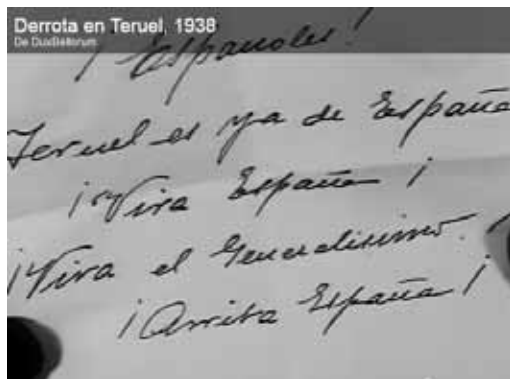 Derrota en Teruel, 1938
De DuxBellorum
¡Españoles!
Teruel es ya de España
¡Viva España ¡
¡Viva el Generalisimo.
¡Arriba España ¡